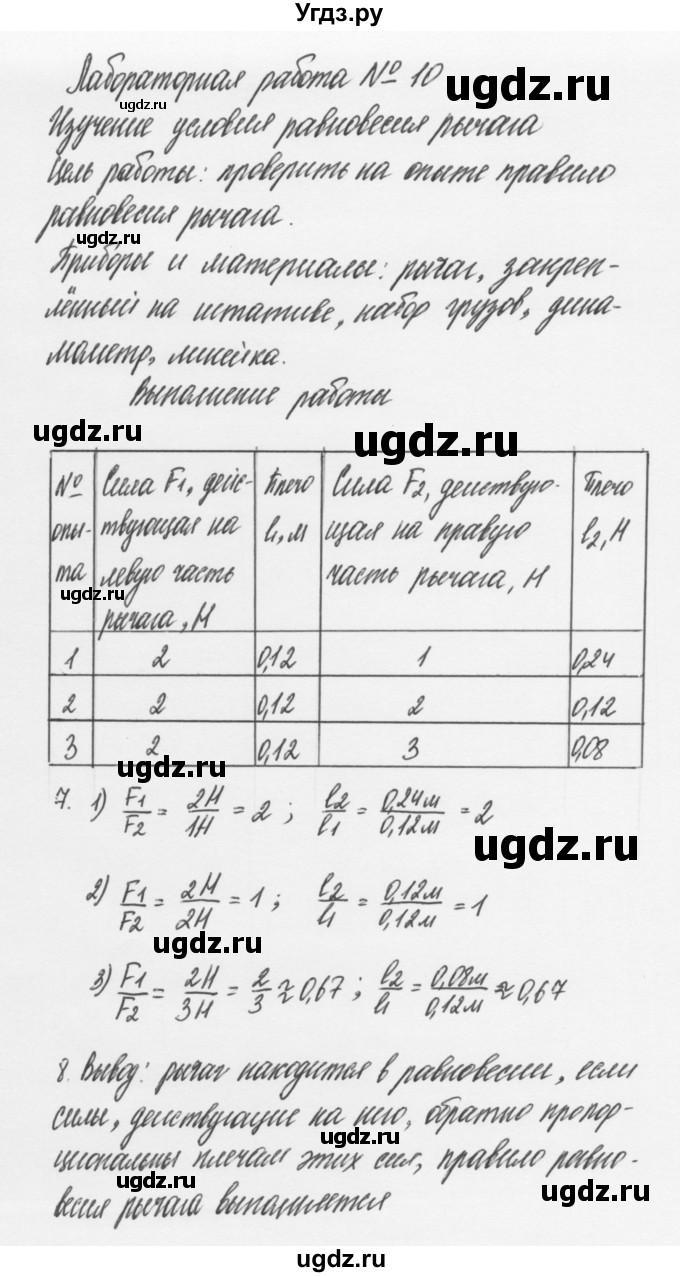 Угдз.ру
Лабораторная работа № 10
ugdz.ru
Изучение условия равновесия рычага
Цель работы: проверить на опыте правило
равновесия рычага.
ugdz.ru
Приборы и материалы: рычаг, закреп-
лённый на штативе, набор грузов, дина-
мометр, линейка.
Выполнение работы
ugdz.ru
№ опы- та | Сила F1, дейс- твующая на левую часть рычага, Н | Плечо l1, м | Сила F2, действую- щая на правую часть рычага, Н | Плечо l2, Н
1 | 2 | 0,12 | 1 | 0,24
2 | 2 | 0,12 | 2 | 0,12
3 | 2 | 0,12 | 3 | 0,08
7. 1) F1/F2 = 2Н/1Н = 2 ; l2/l1 = 0,24м/0,12м = 2
2) F1/F2 = 2Н/2Н = 1 ; l2/l1 = 0,12м/0,12м = 1
ugdz.ru
3) F1/F2 = 2Н/3Н = 2/3 ≈ 0,67 ; l2/l1 = 0,08м/0,12м ≈ 0,67
8. Вывод: рычаг находится в равновесии, если
силы, действующие на него, обратно пропор-
циональны плечам этих сил, правило равно-
весия рычага выполняется
ugdz.ru